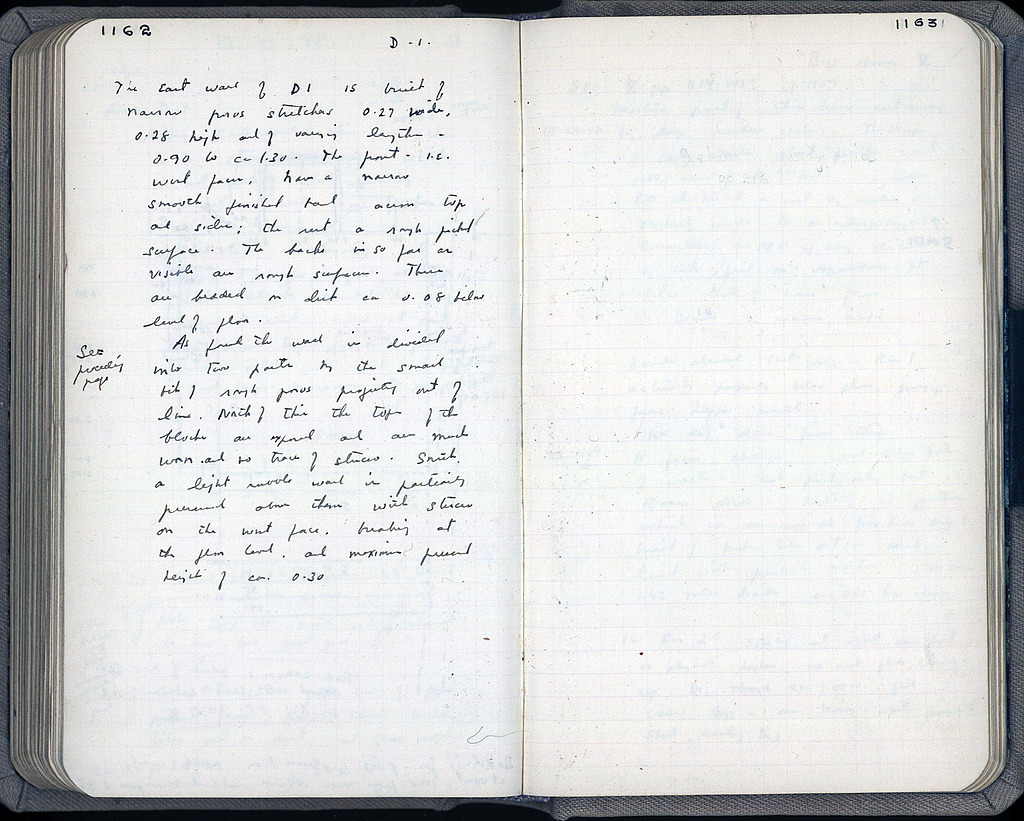 1162
D-1.
The East wall of D1 is built of
narrow poros stretchers 0.27 wide,
0.28 high and of varying lengths -
0.90 to ca 1.30. The front - i.e.
west faces, have a narrow
smooth finished band across top
and sides; the rest a rough picked
surface. The backs in so far as
visible are rough surfaces. These
are bedded on dirt ca 0.08 below
level of floor.
As found the wall is divided
into two parts by the small
bit of rough poros projecting out of
line. North of this the tops of the
blocks are exposed and are much
worn and no trace of stucco. South,
a light rubble wall is partially
preserved above them with stucco
on the west face, breaking at
the floor level, and maximum present
height of ca. 0.30
See
preceding
page
1163